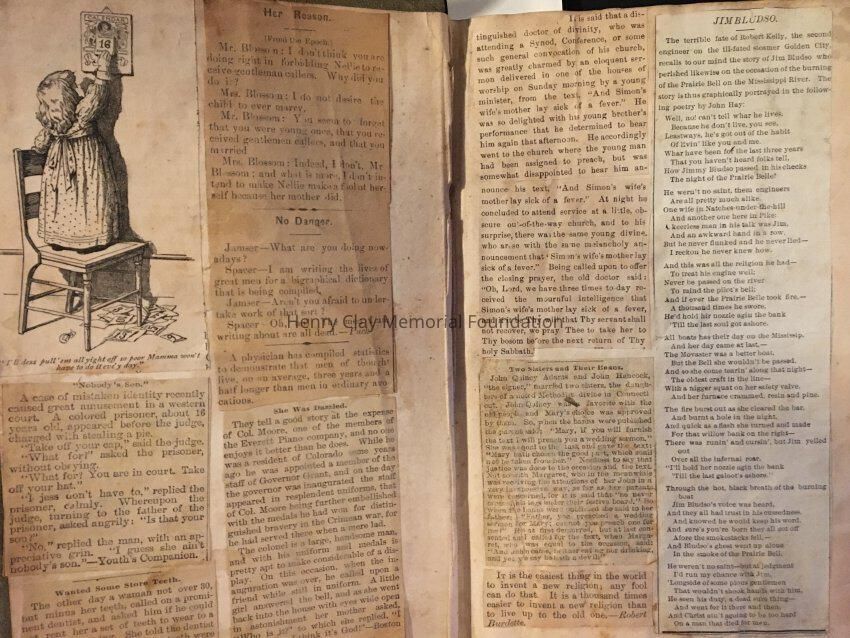 CALENDAR
16
"I'll dest pull 'em all yight off so poor Mamma won't
have to do it ev'y day."
"Nobody's Son."
A case of mistaken identity recently
caused great amusement in a western
court. A colored prisoner, about 16
years old, appeared before the judge,
charged with stealing a pie.
"Take off your cap," said the judge.
"What for?" asked the prisoner,
without obeying.
"What for? You are in court. Take
off your hat."
"I jess don't have to," replied the
prisoner, calmly. Whereupon the
judge, turning to the father of the
prisoner, asked angrily: "Is that your
son?"
"No," replied the man, with an ap-
preciative grin. "I guess she ain't
nobody's son."—Youth's Companion.
Wanted Some Store Teeth.
The other day a woman not over 30,
but minus her teeth, called on a promi-
nent dentist, and asked him if he could
rent her a set of teeth to wear to a
She told the dentist
Her Reason.
[From the Epoch.]
Mr. Blossom: I don't think you are
doing right in forbidding Nellie to re-
ceive gentleman callers. Why did you
do it?
Mrs. Blossom: I do not desire the
child to ever marry.
Mr. Blossom: You seem to forget
that you were young once, that you re-
ceived gentlemen callers, and that you
married
Mrs. Blossom: Indeed, I don't, Mr
Blossom; and what is more, I don't in-
tend to make Nellie make a fool of her-
self because her mother did.
No Danger.
Jamser—What are you doing now-
adays?
Spacer—I am writing the lives of
great men for a biographical dictionary
that is being compiled.
Jamser—Aren't you afraid to under-
take work of that sort?
Spacer—Oh,
writing about are all dead.—Puck.
A physician has compiled statistics
to demonstrate that men of thought
live, on an average, three years and a
half longer than men in ordinary avo-
cations.
She Was Dazzled.
They tell a good story at the expense
of Col. Moore, one of the members of
the Everett Piano company, and no one
enjoys it better than he does. While he
was a resident of Colorado some years
ago he was appointed a member of the
staff of Governor Grant, and on the day
the governor was inaugurated the staff
appeared in resplendent uniforms, that
of Col. Moore being further embellished
with the medals he had won for distin-
guished bravery in the Crimean war, for
he had served there when a mere lad.
The colonel is a large, handsome man,
and with his uniform and medals is
pretty apt to make considerable of a dis-
play. On this occasion, when the in-
auguration was over, he called upon a
friend while still in uniform. A little
girl answered the bell, and as she went
back into the house with eyes wide open
in astonishment her mother asked,
"Who is it?" to which she replied, "I
think it's God!"—Boston
It is said that a dis-
tinguished doctor of divinity, who was
attending a Synod, Conference, or some
such general convocation of his church,
was greatly charmed by an eloquent ser-
mon delivered in one of the houses of
worship on Sunday morning by a young
minister, from the text, "And Simon's
wife's mother lay sick of a fever." He
was so delighted with his young brother's
performance that he determined to hear
him again that afternoon. He accordingly
went to the church where the young man
had been assigned to preach, but was
somewhat disappointed to hear him an-
nounce his text, "And Simon's wife's
mother lay sick of a fever." At night he
concluded to attend service at a little, ob-
scure out-of-the-way church, and to his
surprise, there was the same young divine,
who arose with the same melancholy an-
nouncement that "Simon's wife's mother lay
sick of a fever." Being called upon to offer
the closing prayer, the old doctor said:
"Oh, Lord, we have three times to day re-
ceived the mournful intelligence that
Simon's wife's mother lay sick of a fever,
and if it be Thy will that Thy servant shall
not recover, we pray Thee to take her to
Thy bosom before the next return of Thy
holy Sabbath.
Two Sisters and Their Beaus.
John Quincy Adams and John Hancock,
"the signer," married two sisters, the daugh-
ters of a noted Methodist divine in Connecti-
cut. John Quincy was a favorite with the
old people, and Mary's choice was approved
by them. So, when the banns were published
the parson said: "Mary, if you will furnish
the text I will preach you a wedding sermon."
She was equal to the task and gave the text:
"Mary hath chosen the good part, which shall
not be taken from her." Needless to say that
justice was done to the occasion and the text.
It is the easiest thing in the world
to invent a new religion; any fool
can do that. It is a thousand times
easier to invent a new religion than
to live up to the old one.—Robert
Burdette.
JIM BLUDSO.
The terrible fate of Robert Kelly, the second
engineer on the ill-fated steamer Golden City,
recalls to our mind the story of Jim Bludso who
perished likewise on the occasion of the burning
of the Prairie Bell on the Mississippi River. The
story is thus graphically portrayed in the follow-
ing poetry by John Hay:
Well, no! can't tell whar he lives,
Because he don't live, you see,
Leastways, he's got out of the habit
Of livin' like you and me.
Whar have been for the last three years
That you haven't heard folks tell,
How Jimmy Bludso passed in his checks
The night of the Prairie Belle?
He weren't no saint, them engineers
Are all pretty much alike.
One wife in Natches-under-the-hill
And another one here in Pike;
A keerless man in his talk was Jim,
And an awkward hand in a row,
But he never flunked and he never lied—
I reckon he never knew how.
And this was all the religion he had—
To treat his engine well;
Never be passed on the river
To mind the pilot's bell;
And if ever the Prairie Belle took fire,—
A thousand times he swore,
He'd hold his nozzle agin the bank
Till the last soul got ashore.
All boats has their day on the Mississip.
And her day came at last,—
The Movaster was a better boat,
But the Bell she wouldn't be passed.
And so she come tearin' along that night—
The oldest craft in the line—
With a nigger squat on her safety valve,
And her furnace crammed, resin and pine.
The fire burst out as she cleared the bar,
And burnt a hole in the night,
And quick as a flash she turned and made
For that willow bank on the right—
There was runnin' and cursin', but Jim yelled
out
Over all the infernal roar,
"I'll hold her nozzle agin the bank
Till the last galoot's ashore."
Through the hot, black breath of the burning
boat
Jim Bludso's voice was heard,
And they all had trust in his cussedness,
And knowed he would keep his word.
And sure's you're born they all got off
Afore the smokestacks fell,—
And Bludso's ghost went up alone
In the smoke of the Prairie Bell.
He weren't no saint—but at judgment
I'd run my chance with Jim,
'Longside of some pious gentlemen
That wouldn't shook hands with him.
He seen his duty, a dead sure thing—
And went for it there and then;
And Christ ain't agoing to be too hard
On a man that died for men.
Henry Clay Memorial Foundation